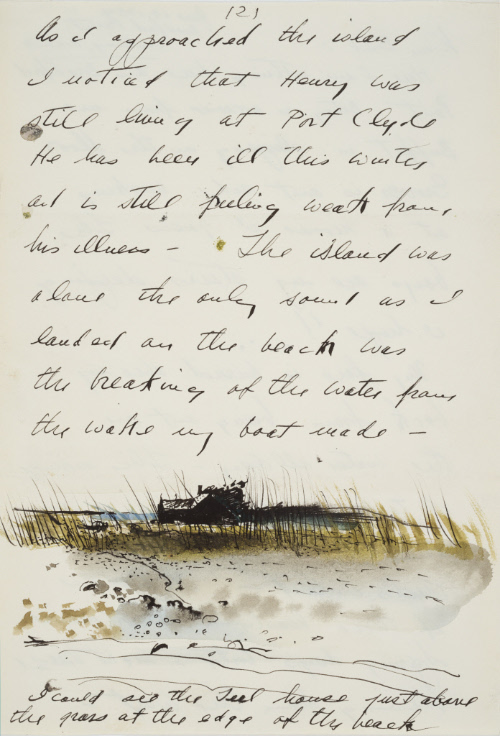 (2)
As I approached the island
I noticed that Henry was
still living at Port Clyde
He has been ill this winter
and is still feeling weak from
his illness – The island was
alone the only sound as I
landed on the beach was
the breaking of the water from
the wake my boat made –
I could see the Teel house just above
the grass at the edge of the beach